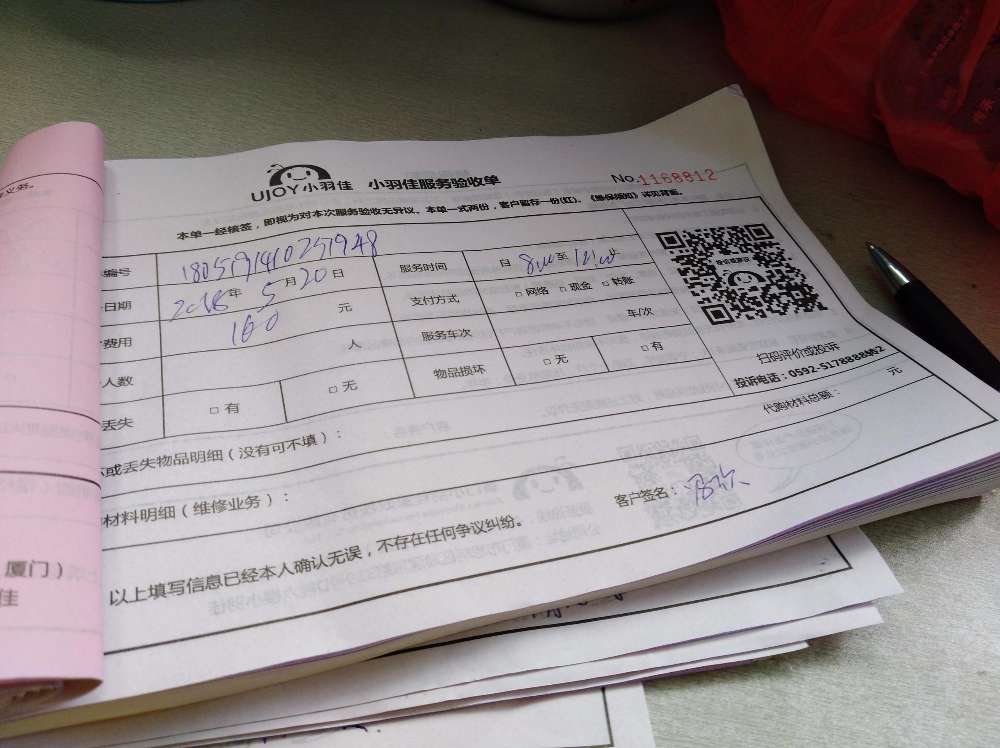 UJOY小羽佳 小羽佳服务验收单 No.1168812
本单一经核签，即视为对本次服务验收无异议。本单一式两份，客户留存一份(红)。《维保须知》详见背面。
编号 1805191410251948 服务时间 自 8:00 至 12:00 止
日期 2018年5月20日 支付方式 □ 网络 □ 现金 □ 转账
费用 160 元 服务车次 车/次
人数 人 物品损坏 □ 无 □ 有
丢失 □ 有 □ 无
扫码评价或投诉
投诉电话：0592-5178888
或丢失物品明细（没有可不填）：
代购材料总额： 元
材料明细（维修业务）：
客户签名：
以上填写信息已经本人确认无误，不存在任何争议纠纷。
厦门）
佳